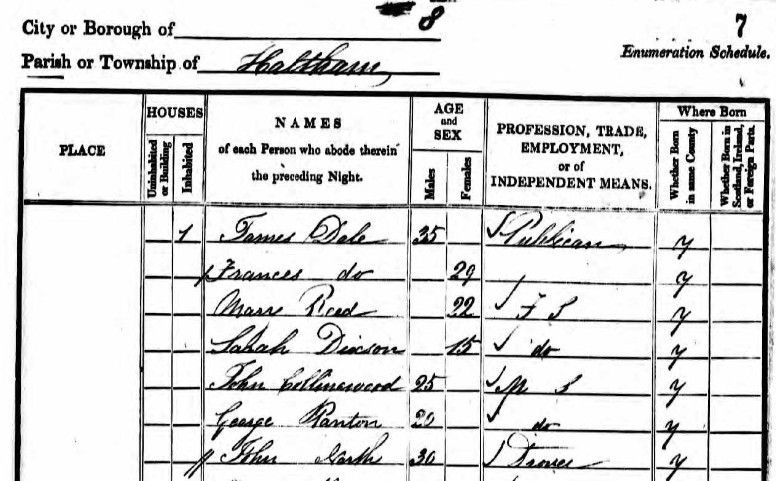 8
7
City or Borough of
Enumeration Schedule.
Parish or Township of Haltham
PLACE
HOUSES
Uninhabited or Building
Inhabited
NAMES
of each Person who abode therein
the preceding Night.
AGE
and
SEX
Males
Females
PROFESSION, TRADE,
EMPLOYMENT,
or of
INDEPENDENT MEANS.
Where Born
Whether Born in same County
Whether Born in Scotland, Ireland, or Foreign Parts.
1 James Dale 35 Publican y
Frances do 29 y
Mary Reed 22 F S y
Sarah Dixson 15 do y
John Collinswood 25 M S y
George Ranton 20 do y
John North 30 Drover y